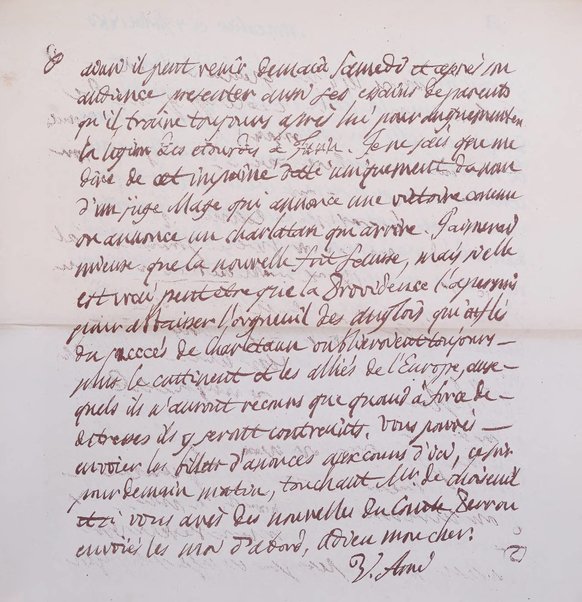 aduis il peut venir demain Samedi et après son
audience presenter aussi ses essains de parents
qu'il traine toujours après lui pour augmenter
la legion des etourdis à Turin. Je ne sais que me
dire de cet imprimé daté uniquement du nom
d'un juge Mage qui annonce une victoire comme
on annonce un charlatan qui arrive. J'aimerai
mieuse que la nouvelle fut fausse, mais si elle
est vrai peut etre que la Providence l'a permis
pour abaiser l'orgueuil des anglois qui
du succés de Charletaun oublieroient toujours
plus le continent et les alliés de l'Europe, aux
quels ils n'auront recours que quand à force de
detreses ils y seront contreints. Vous pouvés
envoier un billet d'anonces aux comis d'ici,
pour demain matin, touchant Mr. de Choiseuil
et si vous avés des nouvelles du Comte
envoiés les moi d'abord, adieu mon cher.
V. Amé